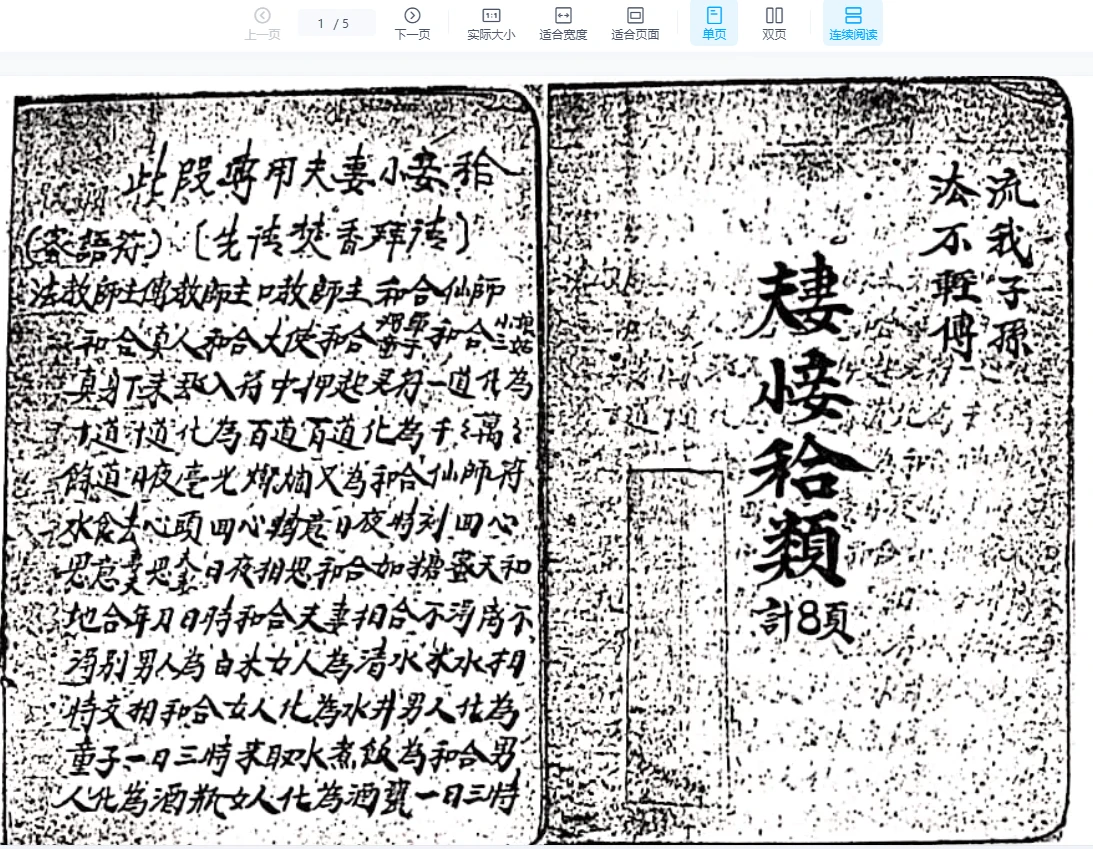 上一页
1 / 5
下一页
实际大小
适合宽度
适合页面
单页
双页
连续阅读
流我子孫
法不輕傳
夫妻
小妾
和合
類
計8頁
此段專用夫妻小妾和合
(先请焚香拜请)
(蜜語符)
法教師主傳教師主口教師主和合仙師
和合真人和合大使和合和合
真身下來烈入符中押起灵符一道化為
十道十道化為百道百道化為千千萬萬
餘道日夜毫光燦爛又為和合仙師符
水食去心頭回心轉意日夜時刻回心
思意妻夫思夫妻日夜相思和合如糖蜜天和
地合年月日時和合夫妻相合不得离不
得别男人為白米女人為清水米水相
特交相和合女人化為水井男人化為
童子一日三時来取水煮飯為和合男
人化為酒瓶女人化為酒甕一日三時